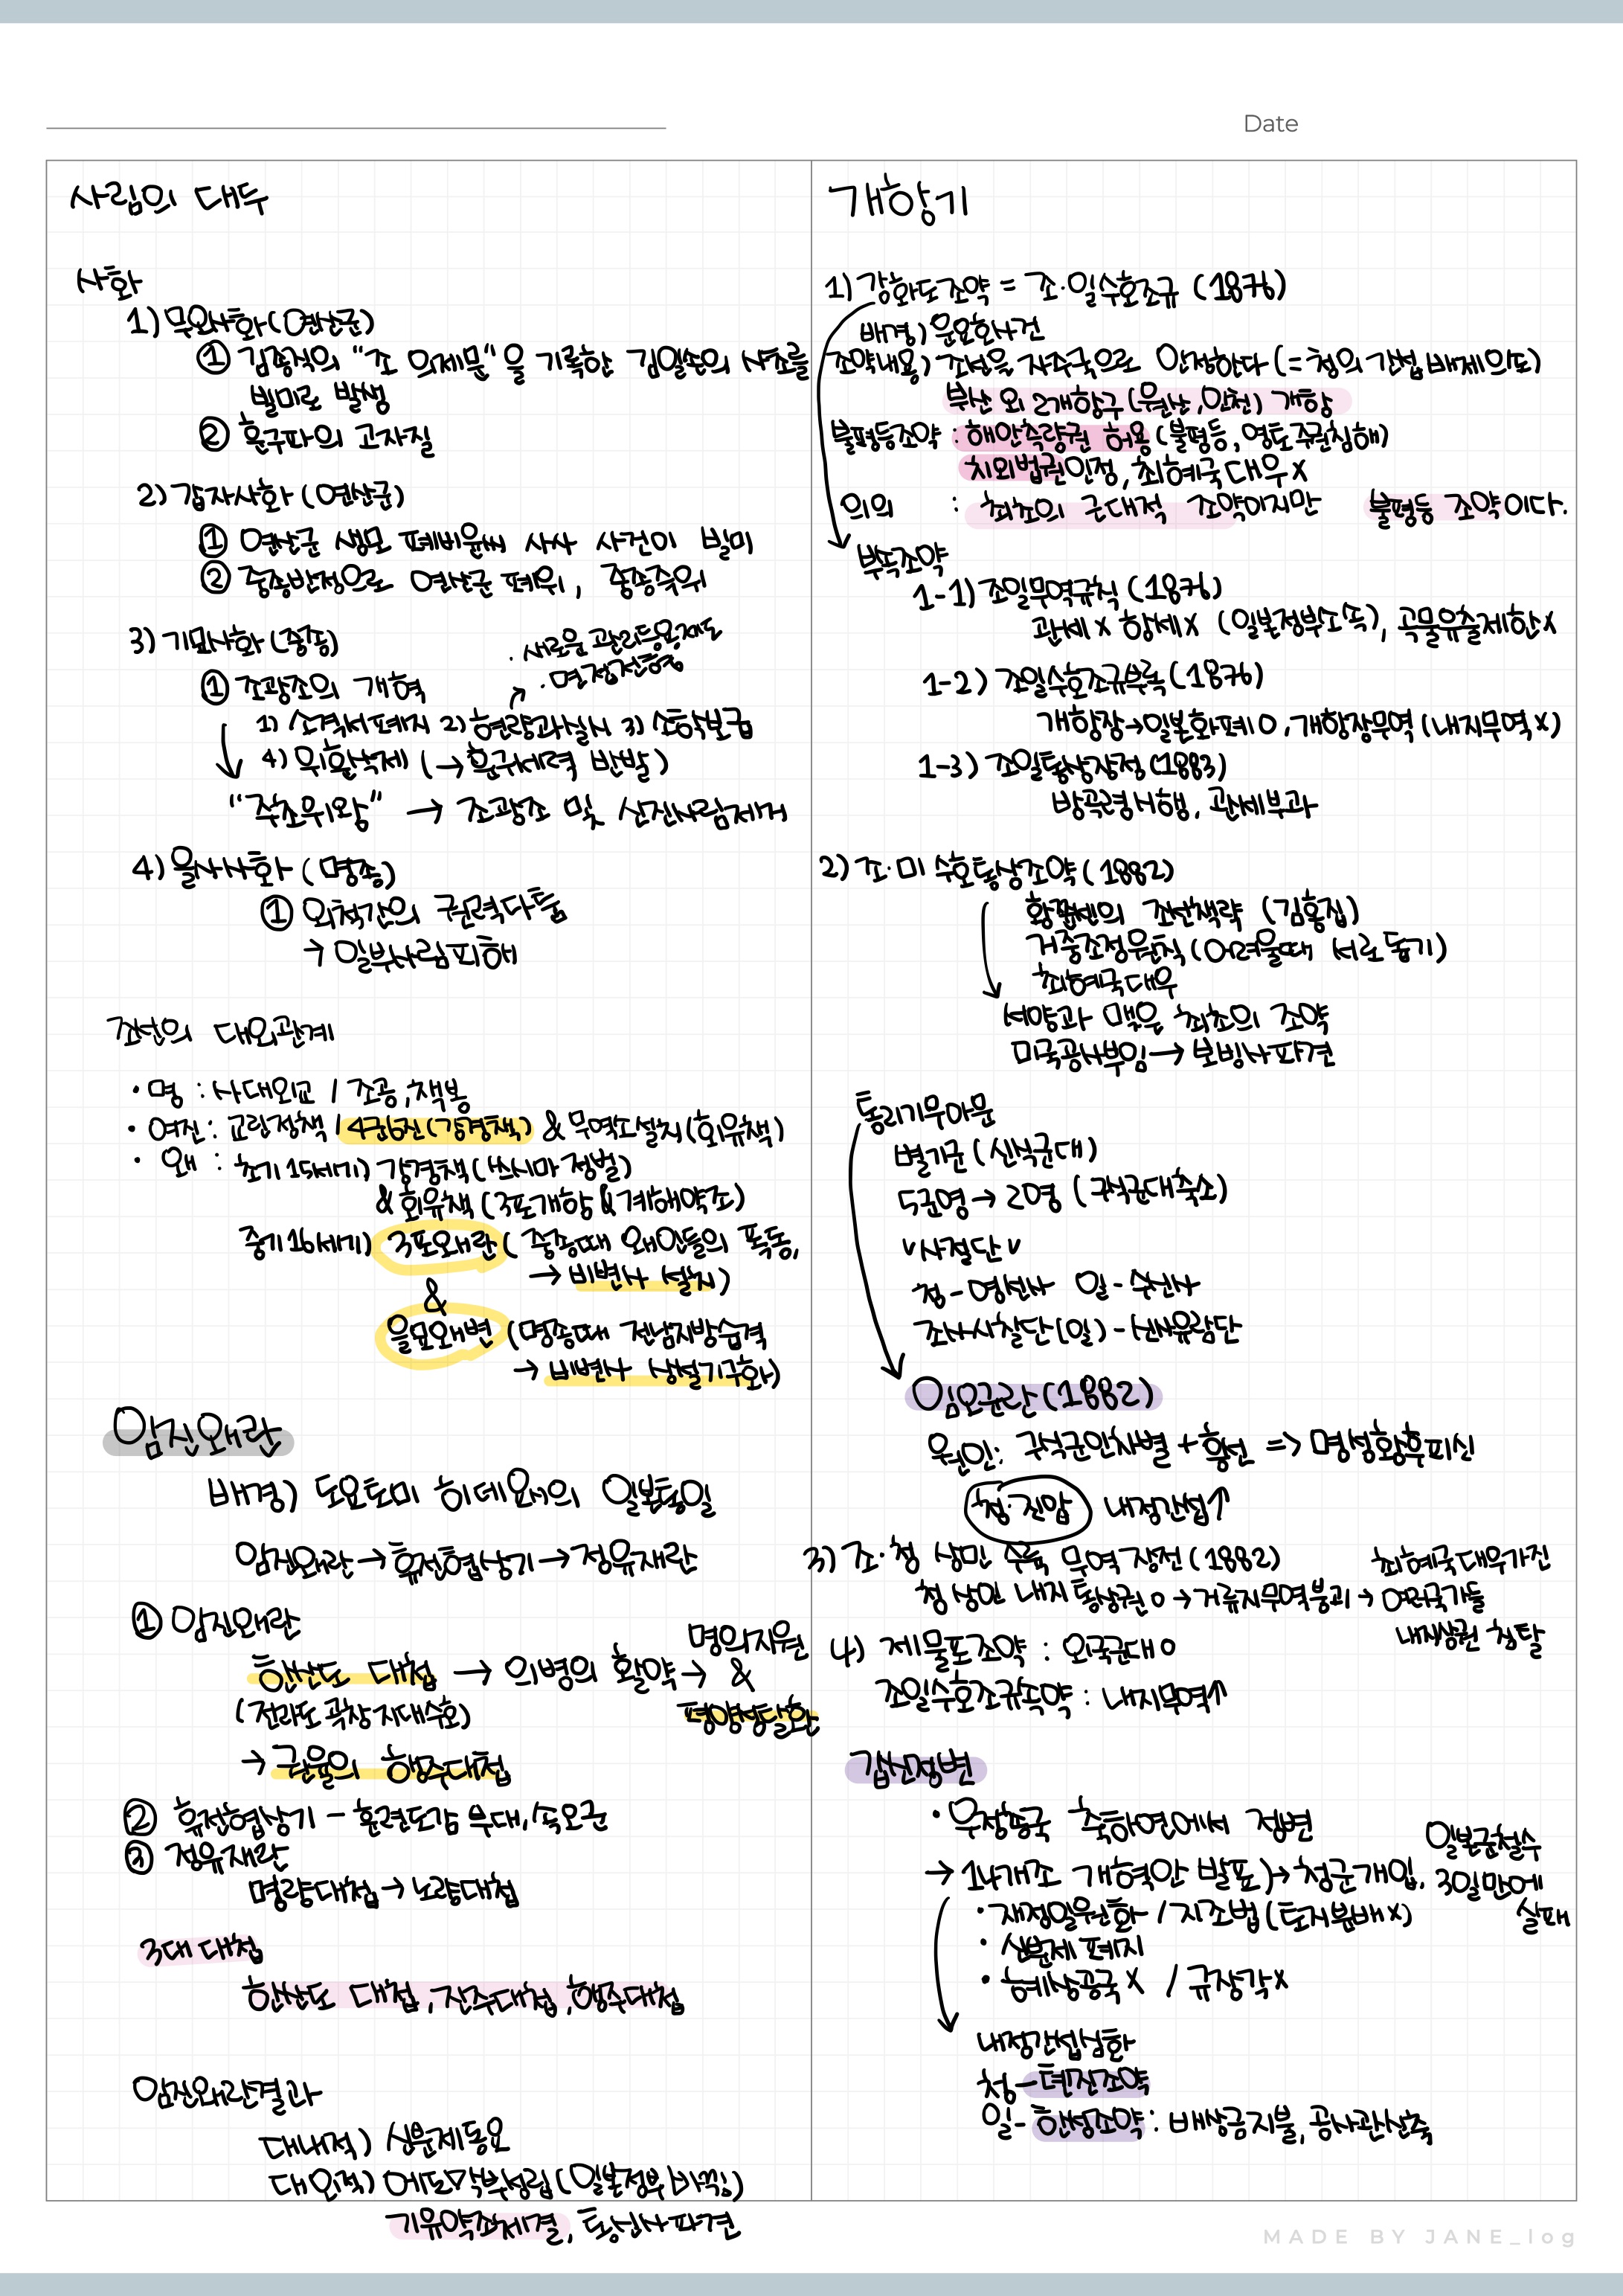 Date
사림의 대두
사화
1) 무오사화(연산군)
① 김종직의 "조의제문"을 기록한 김일손의 사초를
빌미로 발생
② 훈구파의 고자질
2) 갑자사화(연산군)
① 연산군 생모 폐비윤씨 사사 사건이 빌미
② 중종반정으로 연산군 폐위, 중종즉위
3) 기묘사화(중종)
· 새로운 관리등용제도
① 조광조의 개혁
1) 소격서폐지 2) 현량과실시 3) 소학보급
4) 위훈삭제 (→훈구세력 반발)
"주초위왕" → 조광조 및 신진사림제거
4) 을사사화 (명종)
① 외척간의 권력다툼
→ 일부사림피해
조선의 대외관계
· 명 : 사대외교 / 조공, 책봉
· 여진 : 교린정책 / 4군6진(강경책) & 무역소설치(회유책)
· 왜 : 초기15세기) 강경책(쓰시마 정벌)
& 회유책 (3포개항 & 계해약조)
중기16세기) 3포왜란 (중종때 왜인들의 폭동,
→ 비변사 설치)
&
을묘왜변 (명종때 전남지방습격
→ 비변사 상설기구화)
임진왜란
배경) 도요토미 히데요시의 일본통일
임진왜란→휴전협상기→정유재란
① 임진왜란
명의지원
한산도 대첩 → 의병의 활약 → &
(전라도 곡창지대수호) 평양성탈환
→ 권율의 행주대첩
② 휴전협상기 - 훈련도감 부대, 속오군
③ 정유재란
명량대첩→노량대첩
3대 대첩
한산도 대첩, 진주대첩, 행주대첩
임진왜란결과
대내적) 신분제동요
대외적) 에도막부성립(일본정부 바뀜)
기유약조체결, 통신사파견
개항기
1) 강화도조약 = 조·일수호조규 (1876)
배경) 운요호사건
조약내용) 조선을 자주국으로 인정하다 (=청의 간섭 배제의도)
부산 외 2개항구(원산, 인천) 개항
불평등조약 : 해안측량권 허용 (불평등, 영토주권침해)
치외법권인정, 최혜국 대우x
의의 : 최초의 근대적 조약이지만 불평등 조약이다.
부속조약
1-1) 조일무역규칙 (1876)
관세x 항세x (일본정부소속), 곡물유출제한x
1-2) 조일수호조규부록(1876)
개항장→일본화폐 O, 개항장무역(내지무역x)
1-3) 조일통상장정(1883)
방곡령시행, 관세부과
2) 조·미 수호통상조약(1882)
황쭌셴의 조선책략 (김홍집)
거중조정원칙(어려울때 서로 돕기)
최혜국대우
서양과 맺은 최초의 조약
미국공사부임→보빙사파견
통리기무아문
별기군(신식군대)
5군영→2영 (구식군대축소)
v사절단v
청-영선사 일-수신사
조사시찰단(일)-신사유람단
임오군란(1882)
원인: 구식군인차별 + => 명성황후피신
청·진압 내정간섭↑
3) 조·청 상민 수륙 무역 장정(1882) 최혜국대우가진
청 상인 내지 통상권 O → 거류지무역붕괴 → 여러국가들
내지상권 침탈
4) 제물포조약 : 외국군대 O
조일수호조규속약 : 내지무역↑
갑신정변
· 우정총국 축하연에서 정변
일본군철수
→ 14개조 개혁안 발표)→청군개입. 3일만에
실패
· 재정일원화 / 지조법 (토지분배x)
· 신분제 폐지
· 혜상공국 x / 규장각x
내정간섭심화
청-톈진조약
일-한성조약 : 배상금지불, 공사관신축
MADE BY JANE_log